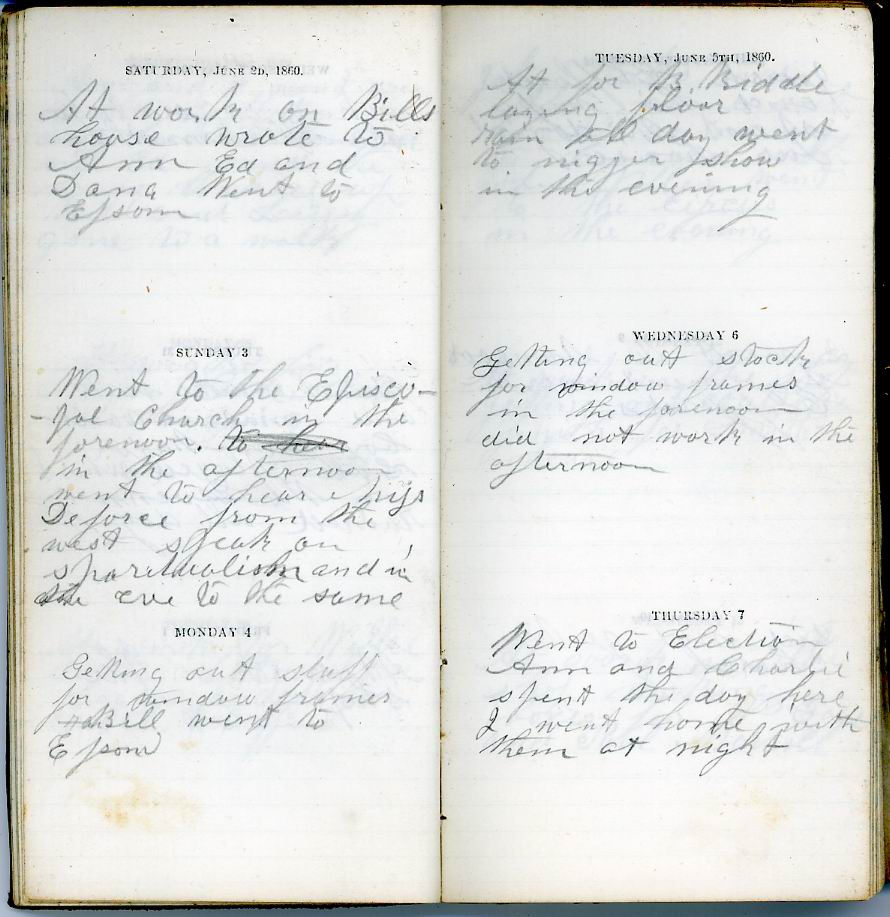 SATURDAY, JUNE 2D, 1860.
At work on Bills
house wrote to
Ann Ed and
Dana Went to
Epsom
SUNDAY 3
Went to the Episco-
-pal Church in the
forenoon. to hear
in the afternoon
went to hear Miss
Deforce from the
west speak on
sparitualism and in
the eve to the same
MONDAY 4
Getting out stuff
for window frames
Bill went to
Epsom
TUESDAY, JUNE 5TH, 1860.
At for B. Riddle
laying floor
rain all day went
to nigger show
in the evening
WEDNESDAY 6
Getting out stock
for window frames
in the forenoon
did not work in the
afternoon
THURSDAY 7
Went to Election
Ann and Charlie
spent the day here
I went home with
them at night